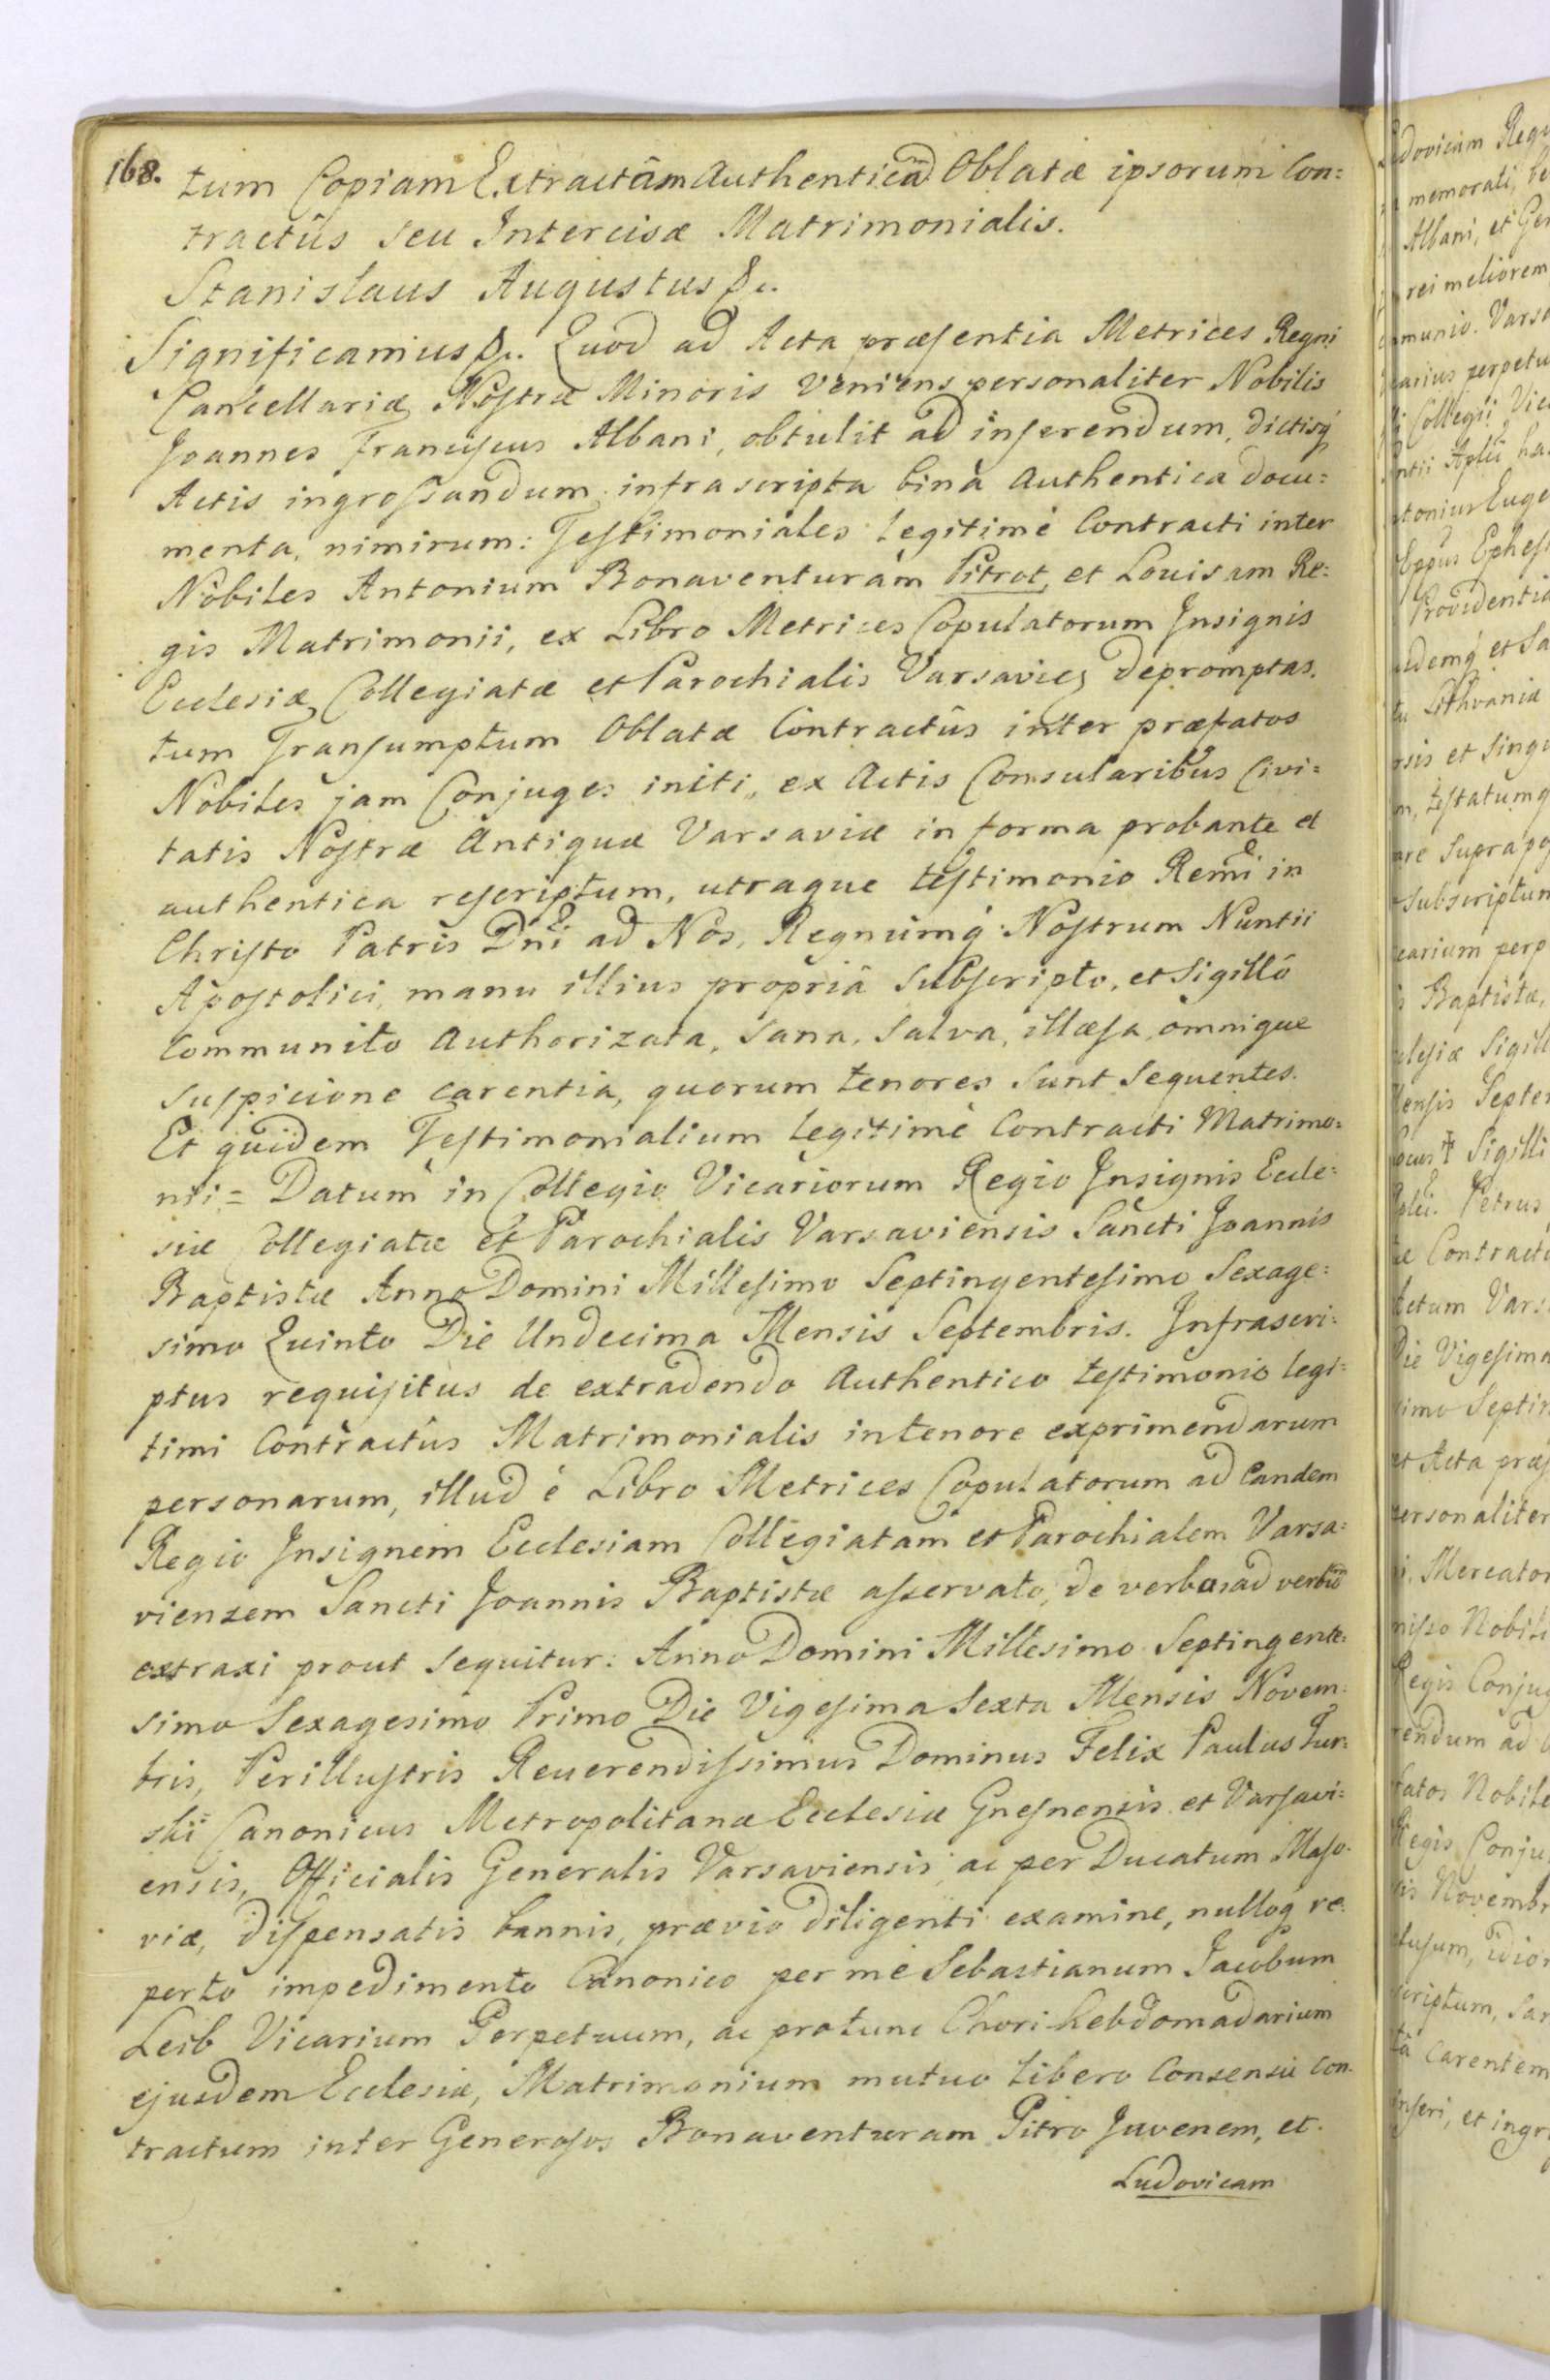 168.
tum Copiam Extractâm Authenticam Oblatæ ipsorum Con=
tractûs seu Intercisæ Matrimonialis.
Stanislaus Augustus &c.
Significamus &c. Quod ad Acta præsentia Metrices Regni
Cancellariæ Nostræ Minoris Veniens personaliter Nobilis
Joannes Franciscus Albani, obtulit ad inserendum, dictisq́
Actis ingrossandum infrascripta bina Authentica docu=
menta, nimirum: Testimoniales legitimè Contracti inter
Nobiles Antonium Bonaventuram Pitrot, et Louisam Re=
gis Matrimonii, ex Libro Metrices Copulatorum Insignis
Ecclesiæ Collegiatæ et Parochialis Varsavieñ depromptas.
tum Transumptum Oblatæ Contractûs inter præfatos
Nobiles jam Conjuges initi, ex Actis Consularibus Civi=
tatis Nostræ Antiquæ Varsaviæ in forma probante et
authentica rescriptum, utraque testimonio Remi in
Christo Patris Dni ad Nos, Regnumq́ Nostrum Nuntii
Apostolici, manu illius propriâ Subscripto, et Sigillô
Communito Authorizata, Sana, Salva, illæsa, omnique
suspicione carentia, quorum tenores Sunt Sequentes.
Et quidem Testimonialium legitimè Contracti Matrimo=
nii = Datum in Collegio Vicariorum Regio Insignis Eccle=
siæ Collegiatæ et Parochialis Varsaviensis Sancti Joannis
Baptistæ Anno Domini Millesimo Septingentesimo Sexage=
simo Quinto Die Undecima Mensis Septembris. Infrascri=
ptus requisitus de extradendo Authentico testimonio legi=
timi Contractûs Matrimonialis in tenore exprimendarum
personarum, illud è Libro Metrices Copulatorum ad eandem
Regio Insignem Ecclesiam Collegiatam et Parochialem Varsa=
viensem Sancti Joannis Baptistæ asservato, de verbo ad verbum
extraxi prout Sequitur: Anno Domini Millesimo Septingente=
simo Sexagesimo Primo Die Vigesima Sexta Mensis Novem=
bris, Perillustris Reverendissimus Dominus Felix Paulus Tur=
ski Canonicus Metropolitanæ Ecclesiæ Gnesnensis et Varsavi=
ensis, Officialis Generalis Varsaviensis ac per Ducatum Maso=
viæ, dispensatis bannis, prævio diligenti examine, nulloq́ re=
perto impedimento Canonico per mè Sebastianum Jacobum
Leib Vicarium Perpetuum, ac protunc Chori hebdomadarium
ejusdem Ecclesiæ, Matrimonium mutuo libero Consensu Con=
tractum inter Generosos Bonaventuram Pitro Juvenem, et
Ludovicam